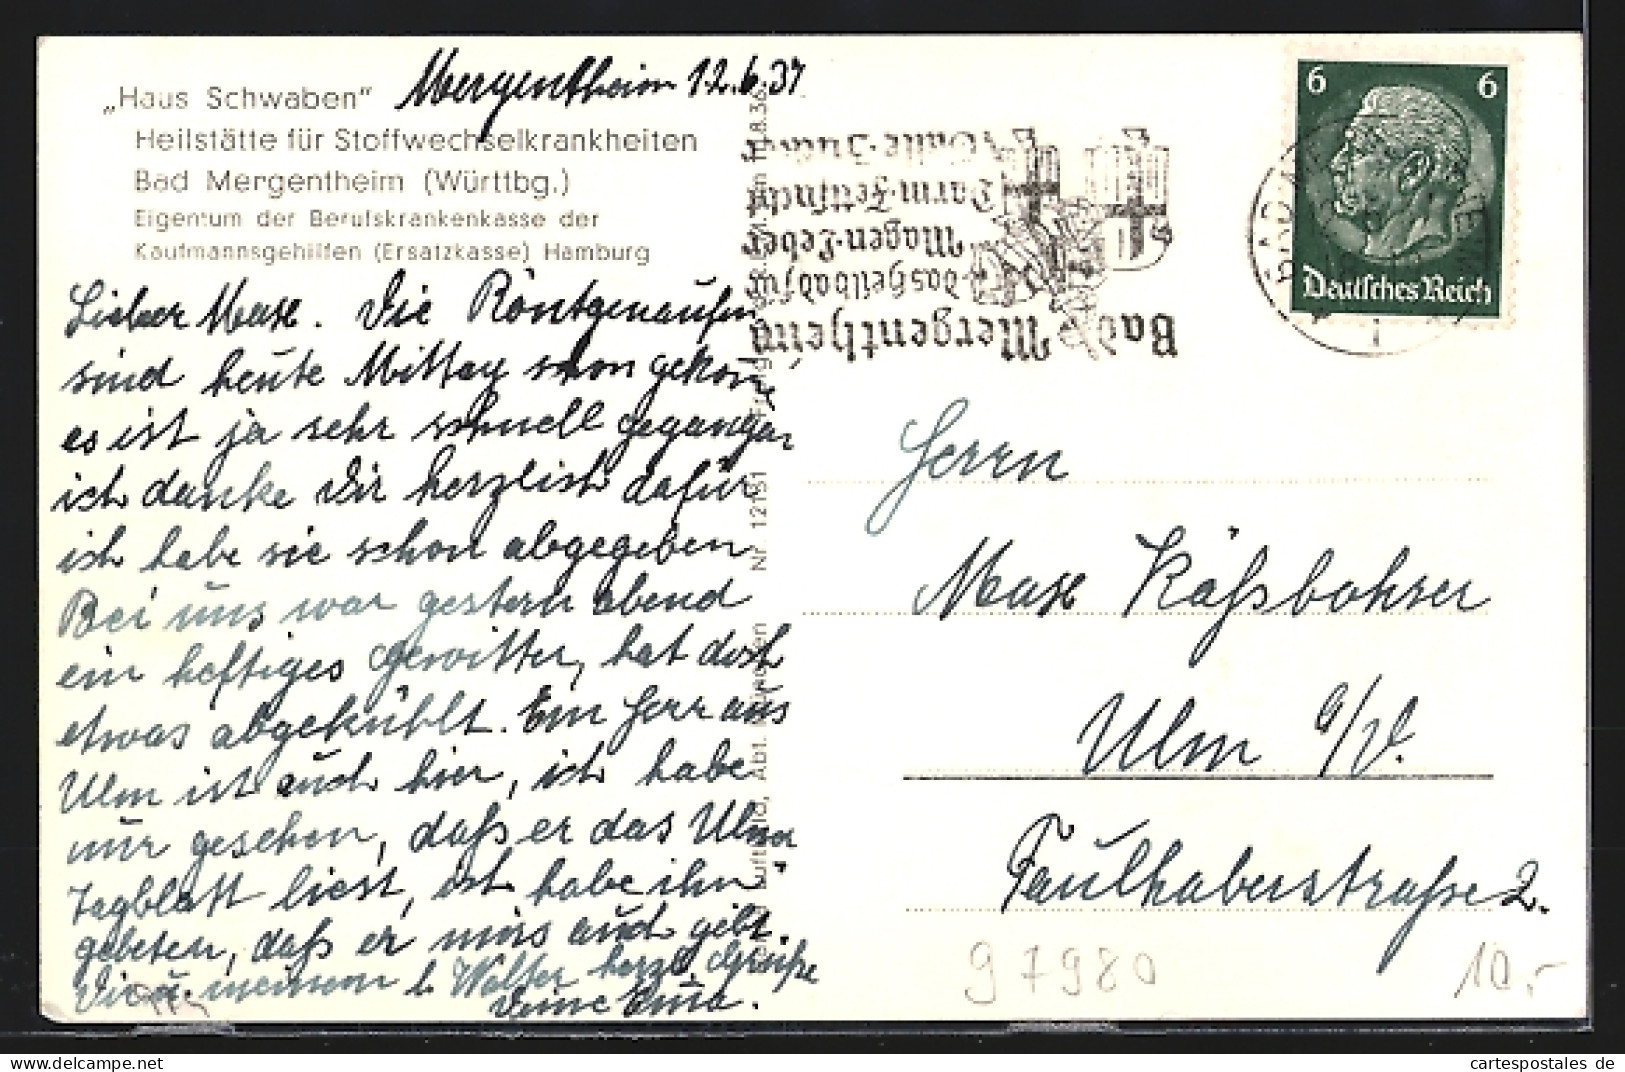 „Haus Schwaben"
Heilstätte für Stoffwechselkrankheiten
Bad Mergentheim (Württbg.)
Eigentum der Berufskrankenkasse der
Kaufmannsgehilfen (Ersatzkasse) Hamburg
Mergentheim 12.6.37
Lieber Max. Die Röntgenaufn,
sind heute Mittag schon gekom,
es ist ja sehr schnell gegangen
ich danke Dir herzlich dafür
ich habe sie schon abgegeben
Bei uns war gestern abend
ein heftiges Gewitter, hat doch
etwas abgekühlt. Ein Herr aus
Ulm ist auch hier, ich habe
nur gesehen, daß er das Ulmer
Tagblatt liest, ich habe ihn
gebeten, daß er mirs auch gibt.
Dir u. meinem l. Walter herzl. Grüße
Deine
Nr. 12151
Abt. München
8.36
Bad
Mergentheim
das Heilbad für
Magen-Leber
Darm-Fettsucht
Galle-Zucker
6 6
Deutsches Reich
Herrn
Max Käßbohrer
Ulm a/D.
Faulhaberstraße 2.
97980
10.-
cartespostales de